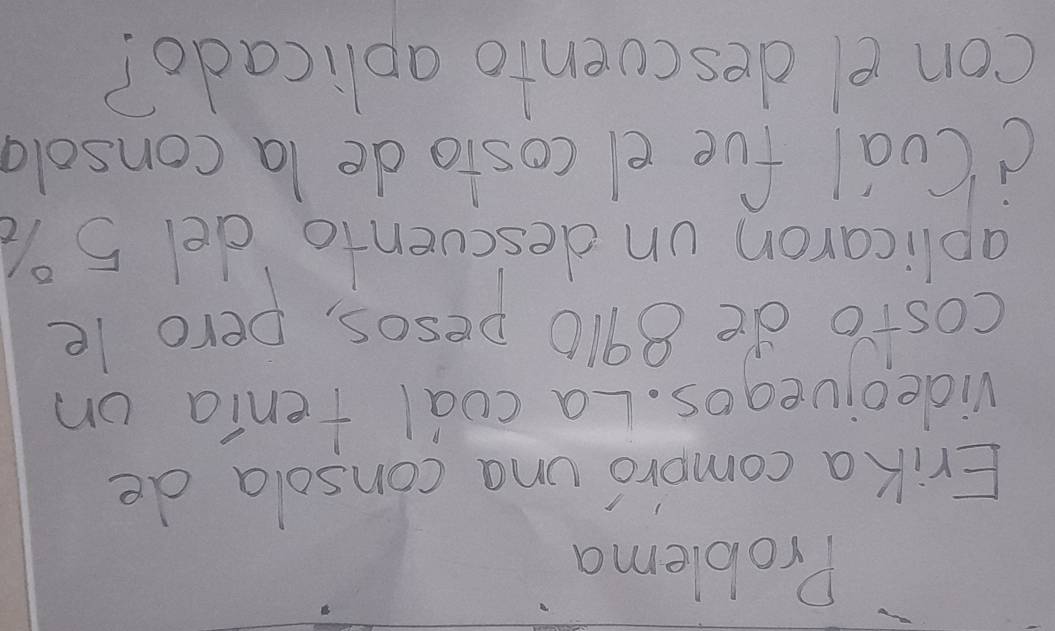 Problema
Erika compró una consola de
videojuegos. La cúal tenía un
costo de 8910 pesos, pero le
aplicaron un descuento del 5%
¿Cúal fue el costo de la consola
con el descuento aplicado?